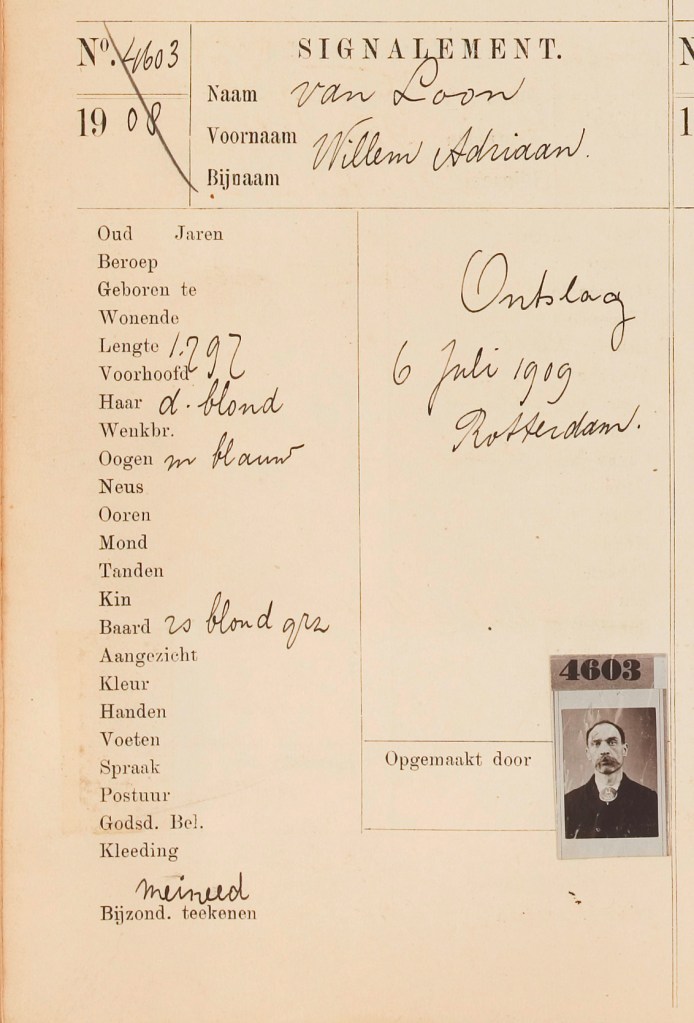 Nº. 4603
1908
SIGNALEMENT.
Naam van Loon
Voornaam Willem Adriaan.
Bijnaam
Oud Jaren
Beroep
Geboren te
Wonende
Lengte 1.797
Voorhoofd
Haar d. blond
Wenkbr.
Oogen m blauw
Neus
Ooren
Mond
Tanden
Kin
Baard rs blond grz
Aangezicht
Kleur
Handen
Voeten
Spraak
Postuur
Godsd. Bel.
Kleeding
meineed
Bijzond. teekenen
Ontslag
6 Juli 1909
Rotterdam.
Opgemaakt door
4603
N
1